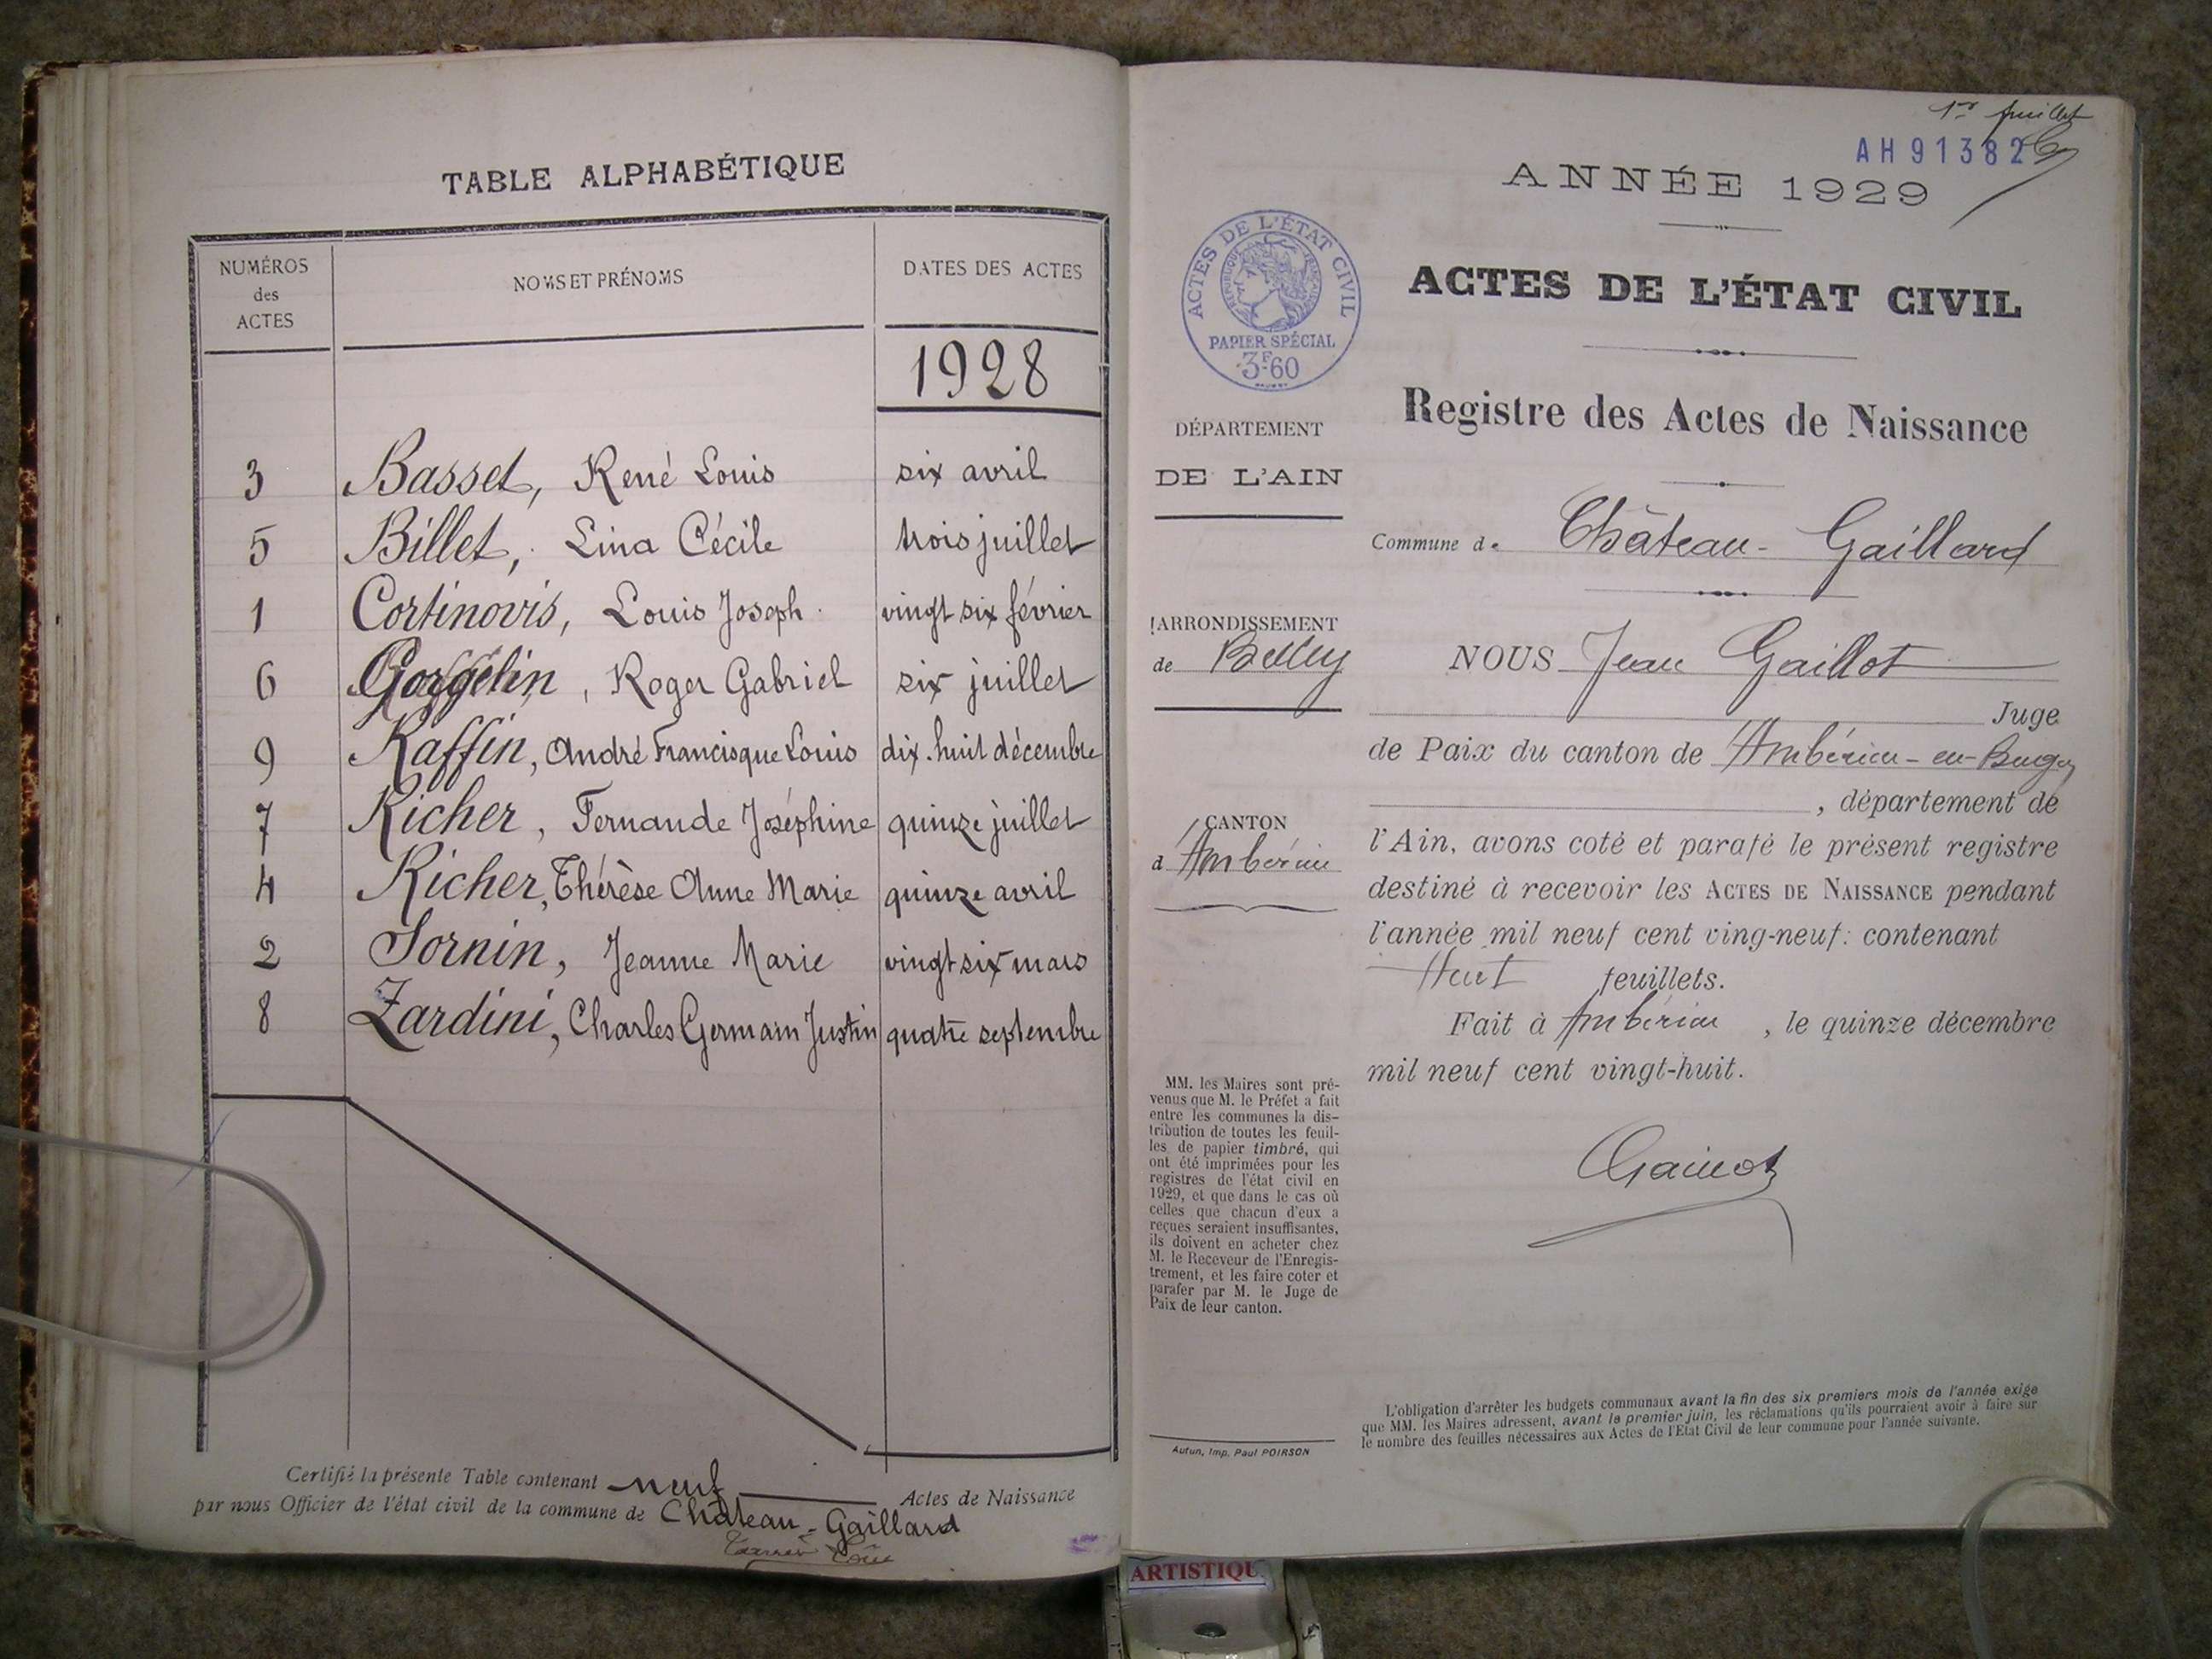 TABLE ALPHABÉTIQUE
NUMÉROS
des
ACTES
NOMS ET PRÉNOMS
DATES DES ACTES
1928
3 Basset, René Louis six avril
5 Billet, Lina Cécile trois juillet
1 Cortinovis, Louis Joseph vingt six février
6 Gorgelin, Roger Gabriel six juillet
9 Raffin, André Francisque Louis dix-huit décembre
7 Richer, Fernande Joséphine quinze juillet
4 Richer, Thérèse Anne Marie quinze avril
2 Sornin, Jeanne Marie vingt six mars
8 Zardini, Charles Germain Justin quatre septembre
Certifié la présente Table contenant neuf Actes de Naissance
par nous Officier de l'état civil de la commune de Château-Gaillard
1er feuillet
AH 91382
ANNÉE 1929
ACTES DE L'ÉTAT CIVIL
RÉPUBLIQUE FRANÇAISE
PAPIER SPÉCIAL
3F.60
ACTES DE L'ÉTAT CIVIL
Registre des Actes de Naissance
DÉPARTEMENT
DE L'AIN
Commune de Château-Gaillard
ARRONDISSEMENT
de Belley
NOUS Jean Gaillot
Juge
de Paix du canton de Ambérieu-en-Bugey
, département de
CANTON
d'Ambérieu
l'Ain, avons coté et parafé le présent registre
destiné à recevoir les ACTES DE NAISSANCE pendant
l'année mil neuf cent ving-neuf: contenant
Huit feuillets.
Fait à Ambérieu, le quinze décembre
mil neuf cent vingt-huit.
Gaillot
MM. les Maires sont pré-
venus que M. le Préfet a fait
entre les communes la dis-
tribution de toutes les feuil-
les de papier timbré, qui
ont été imprimées pour les
registres de l'état civil en
1929, et que dans le cas où
celles que chacun d'eux a
reçues seraient insuffisantes,
ils doivent en acheter chez
M. le Receveur de l'Enregis-
trement, et les faire coter et
parafer par M. le Juge de
Paix de leur canton.
Autun, Imp. Paul POIRSON
L'obligation d'arrêter les budgets communaux avant la fin des six premiers mois de l'année exige
que MM. les Maires adressent, avant le premier juin, les réclamations qu'ils pourraient avoir à faire sur
le nombre des feuilles nécessaires aux Actes de l'Etat Civil de leur commune pour l'année suivante.
ARTISTIQU